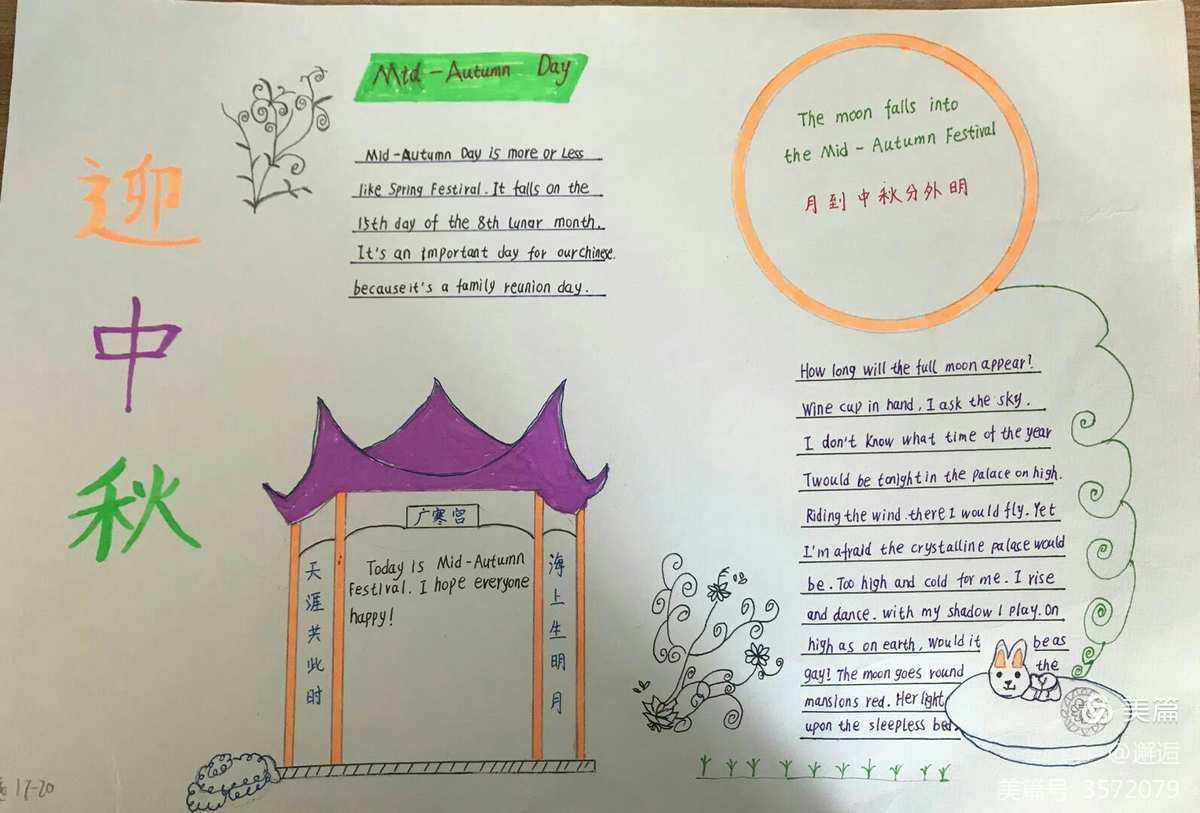 迎
中
秋
Mid-Autumn Day
Mid-Autumn Day is more or Less
like Spring Festival. It falls on the
15th day of the 8th lunar month.
It's an important day for our chinese.
because it's a family reunion day.
The moon falls into
the Mid-Autumn Festival
月到中秋分外明
广寒宫
海上生明月
天涯共此时
Today is Mid-Autumn
Festival. I hope everyone
happy!
How long will the full moon appear?
Wine cup in hand, I ask the sky.
I don't know what time of the year
Twould be tonight in the palace on high.
Riding the wind. there I would fly. Yet
I'm afraid the crystalline palace would
be. Too high and cold for me. I rise
and dance. with my shadow I play. On
high as on earth, would it be as
gay? The moon goes round the
mansions red. Her light
upon the sleepless bed.
17-20
美篇
@邂逅
美篇号 3572079